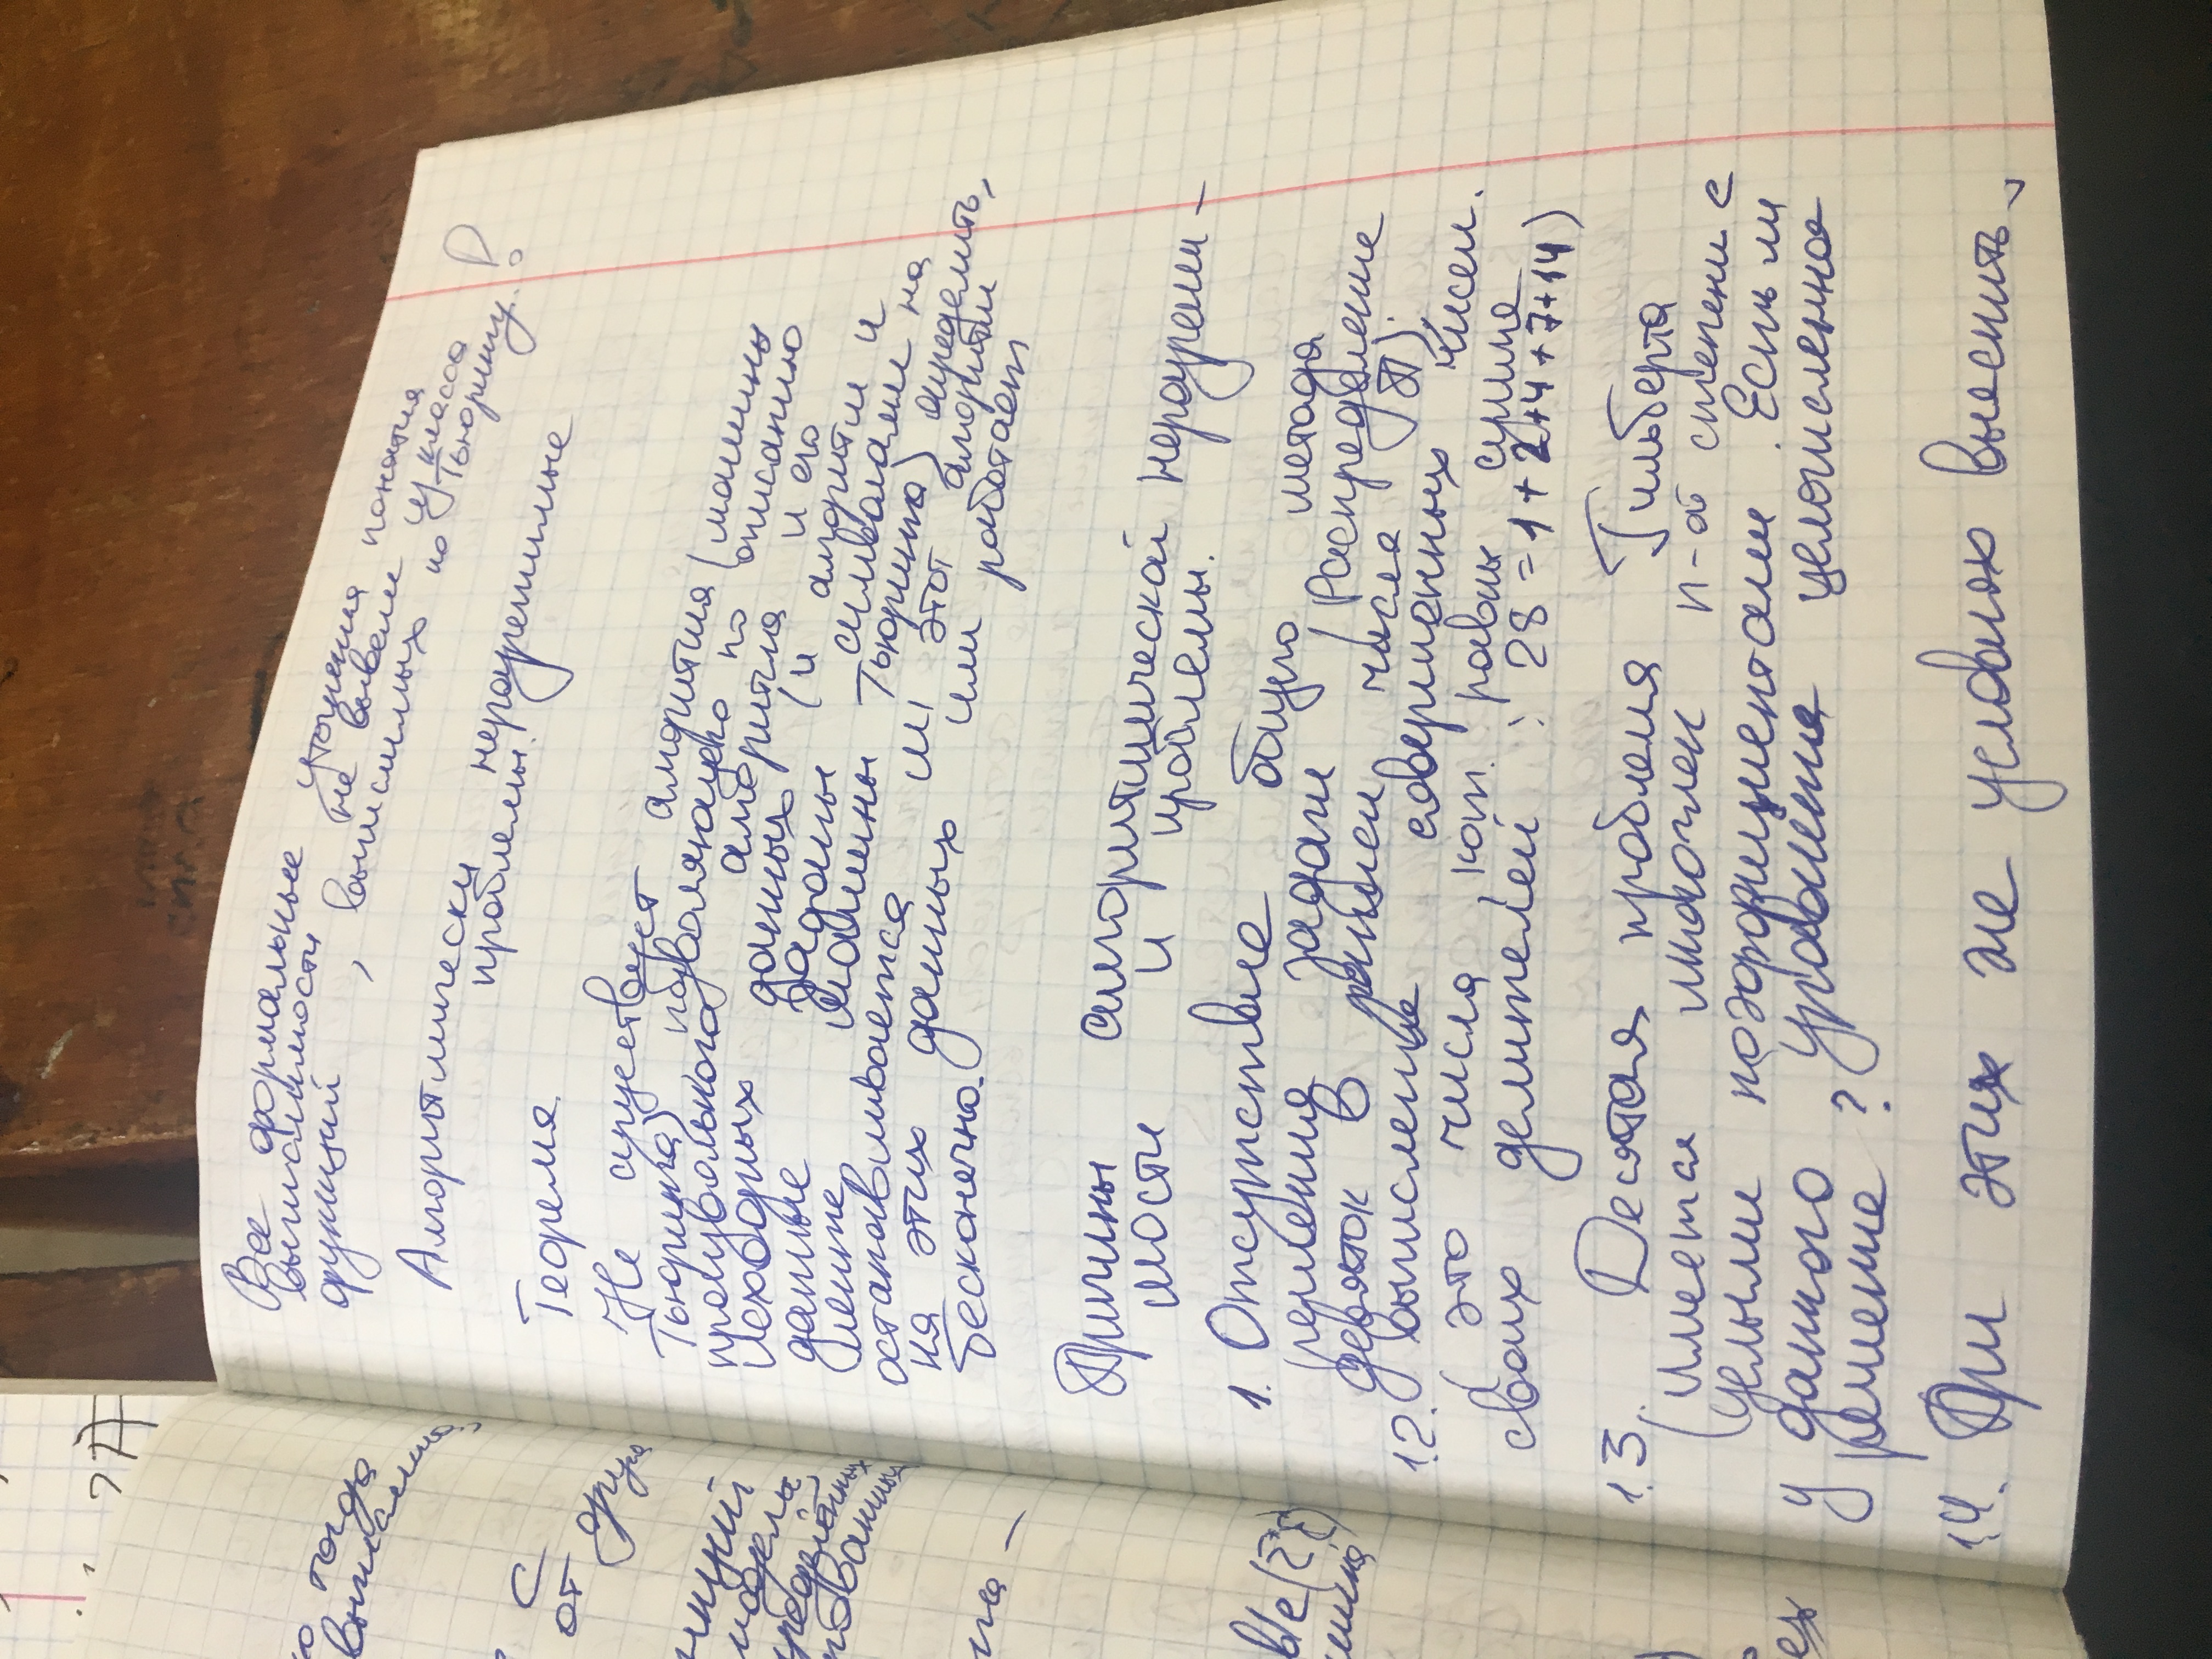 Все формальные уточнения понятия
вычислимости не вывели из класса
функций, вычислимых по Тьюрингу. !
Алгоритмически неразрешимые
проблемы.
Теорема.
Не существует алгоритма (машины
Тьюринга), позволяющего по описанию
произвольного алгоритма и его
исходных данных (и алгоритм и
данные заданы символами на
ленте машины Тьюринга) определить,
останавливается ли этот алгоритм
на этих данных или работает
бесконечно.
Причины алгоритмической неразреши-
мости и проблемы.
1. Отсутствие общего метода
решения задачи (Распределение
девяток в записи числа π);
1.2. вычисление совершенных чисел.
(это числа, кот. равны сумме
своих делителей: 28 = 1+2+4+7+14)
1.3. Десятая проблема Гильберта
(имеется многочлен n-ой степени с
целыми коэффициентами. Есть ли
у данного уравнения целочисленное
решение?
1.4. При этих же условиях выяснить,
тогда
вычислима,
С
от друга